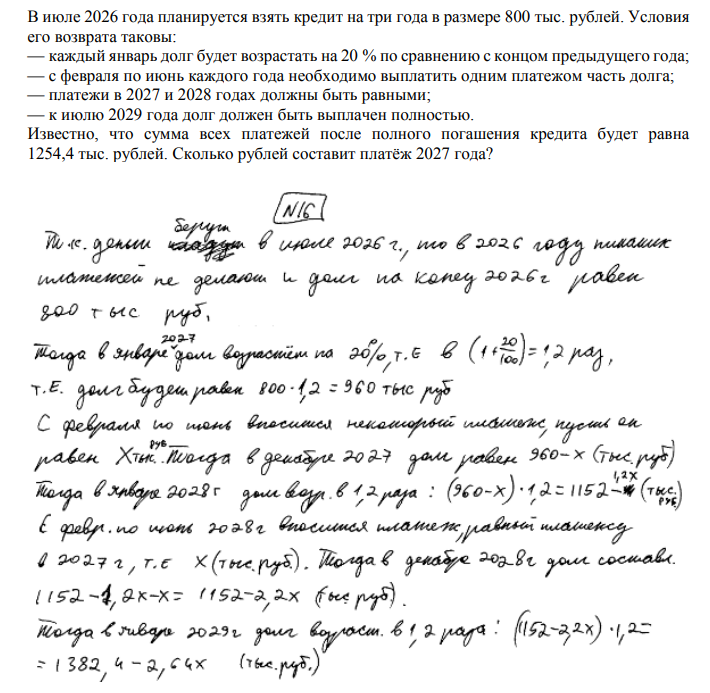 В июле 2026 года планируется взять кредит на три года в размере 800 тыс. рублей. Условия
его возврата таковы:
— каждый январь долг будет возрастать на 20 % по сравнению с концом предыдущего года;
— с февраля по июнь каждого года необходимо выплатить одним платежом часть долга;
— платежи в 2027 и 2028 годах должны быть равными;
— к июлю 2029 года долг должен быть выплачен полностью.
Известно, что сумма всех платежей после полного погашения кредита будет равна
1254,4 тыс. рублей. Сколько рублей составит платёж 2027 года?
N16
Т.к. деньги берут в июле 2026 г., то в 2026 году никаких
платежей не делают и долг на конец 2026 г равен
800 тыс руб.
Тогда в январе 2027 долг возрастёт на 20%, т.е в (1+20/100)=1,2 раз,
т.е. долг будет равен 800·1,2=960 тыс руб
С февраля по июнь вносится некоторый платеж, пусть он
равен X тыс. руб. Тогда в декабре 2027 долг равен 960-x (тыс. руб)
Тогда в январе 2028г долг возр. в 1,2 раза: (960-x)·1,2=1152-1,2x (тыс. руб.)
С февр. по июнь 2028г вносится платеж, равный платежу
в 2027 г, т.е X (тыс. руб.). Тогда в декабре 2028г долг составл.
1152-1,2x-x= 1152-2,2x (тыс руб).
Тогда в январе 2029г долг возраст. в 1,2 раза: (1152-2,2x)·1,2=
=1382,4-2,64x (тыс.руб.)